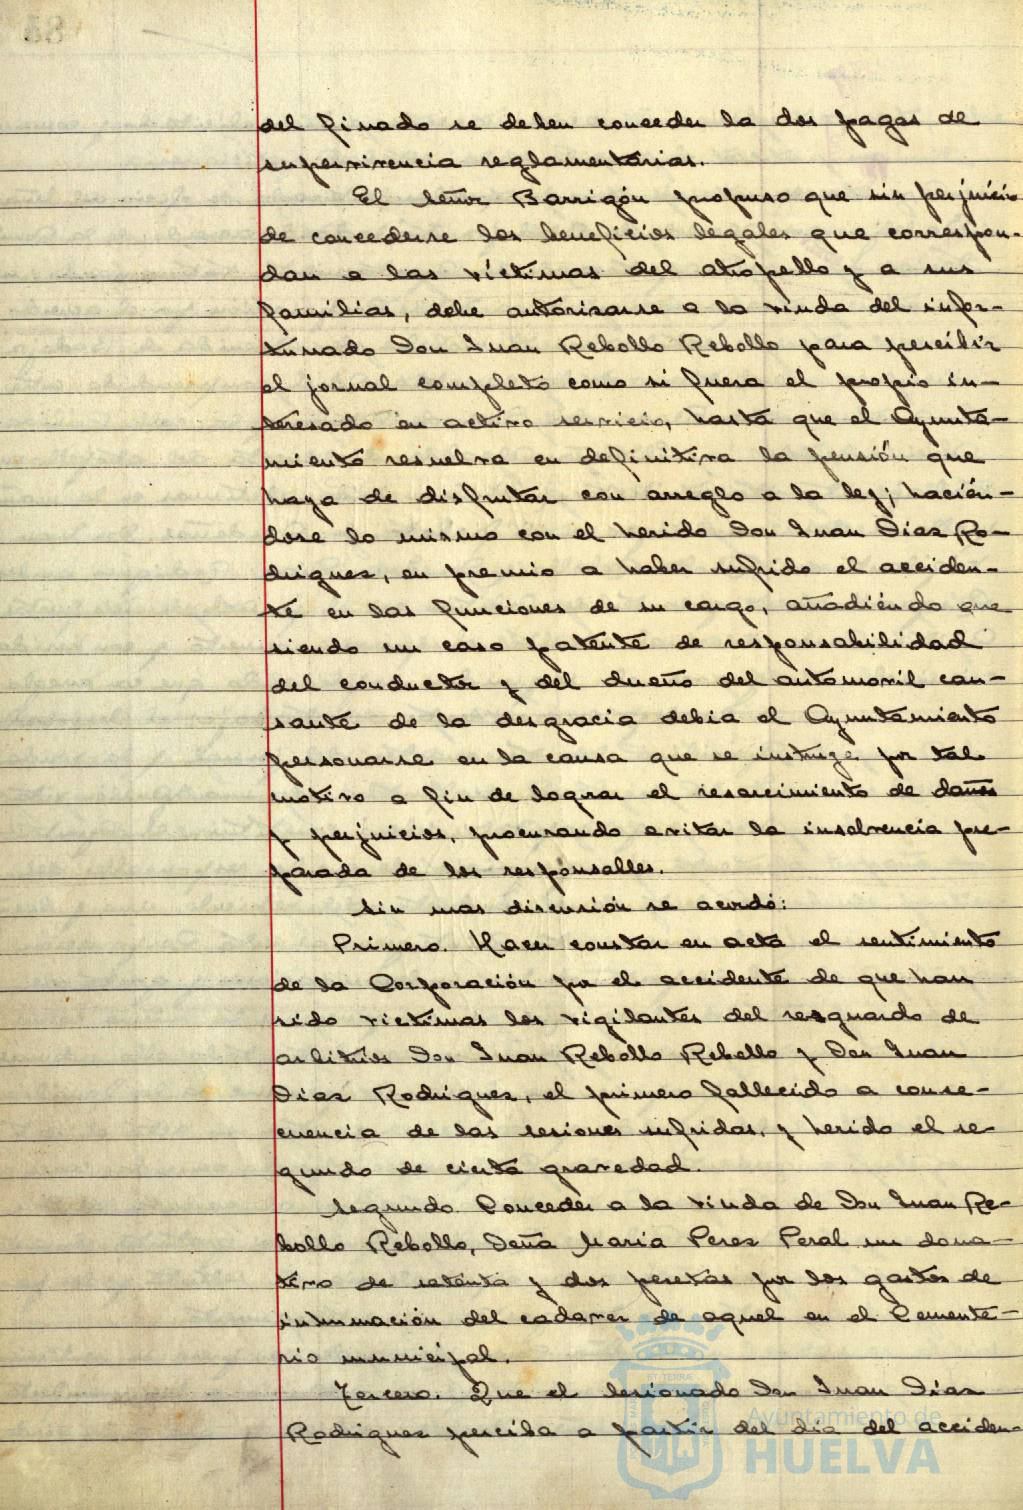 del finado se deben conceder la dos pagas de
supervivencia reglamentarias.
El Señor Barrigón propuso que sin perjuicio
de concederse los beneficios legales que correspon-
dan a las víctimas del atropello y a sus
familias, debe autorizarse a la viuda del infor-
tunado Don Juan Rebollo Rebollo para percibir
el jornal completo como si fuera el propio in-
teresado en activo servicio, hasta que el Ayunta-
miento resuelva en definitiva la pensión que
haya de disfrutar con arreglo a la ley; hacién-
dose lo mismo con el herido Don Juan Díaz Ro-
driguez, en premio a haber sufrido el acciden-
te en las funciones de su cargo, añadiéndo que
siendo un caso patente de responsabilidad
del conductor y del dueño del automovil cau-
sante de la desgracia debia el Ayuntamiento
personarse en la causa que se instruye por tal
motivo a fin de lograr el resarcimiento de daños
y perjuicios, procurando evitar la insolvencia pre-
parada de los responsables.
Sin mas discusión se acordó:
Primero. Hacer constar en acta el sentimiento
de la Corporación por el accidente de que han
sido victimas los vigilantes del resguardo de
arbitrios Don Juan Rebollo Rebollo y Don Juan
Diaz Rodriguez, el primero fallecido a conse-
cuencia de las lesiones sufridas, y herido el se-
gundo de cierta gravedad.
Segundo. Conceder a la viuda de Don Juan Re-
bollo Rebollo, Doña María Perez Peral un dona-
tivo de setenta y dos pesetas por los gastos de
inhumación del cadaver de aquel en el Cemente-
rio municipal.
Tercero. Que el lesionado Don Juan Díaz
Rodriguez perciba a partir del dia del acciden-
Ayuntamiento de
HUELVA